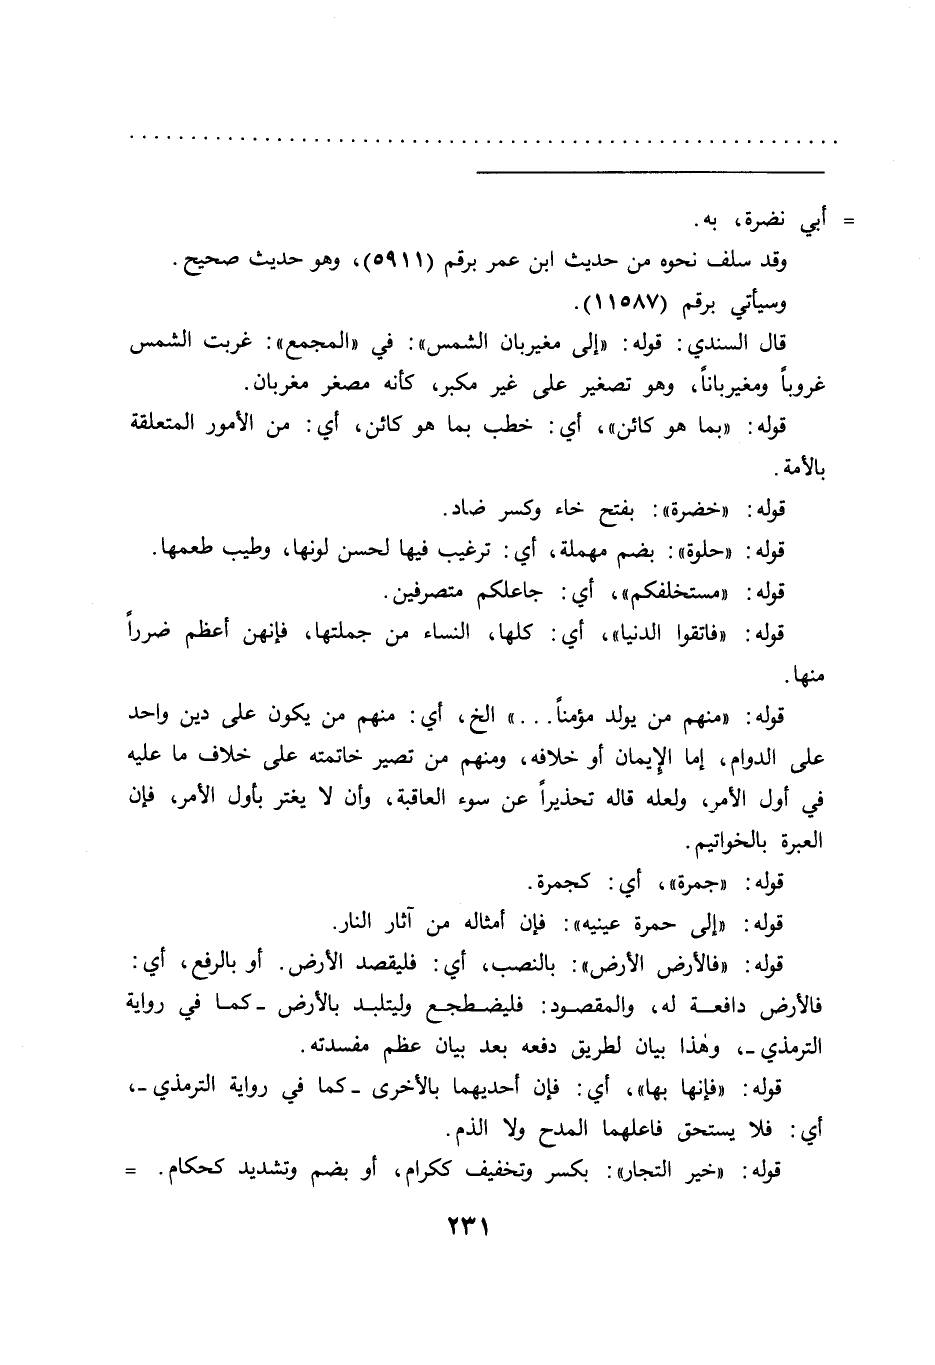 = أبي نضرة، به.
وقد سلف نحوه من حديث ابن عمر برقم (٥٩١١)، وهو حديث صحيح.
وسيأتي برقم (١١٥٨٧).
قال السندي: قوله: «إلى مغيربان الشمس»: في «المجمع»: غربت الشمس
غروباً ومغيرباناً، وهو تصغير على غير مكبر، كأنه مصغر مغربان.
قوله: «بما هو كائن»، أي: خطب بما هو كائن، أي: من الأمور المتعلقة
بالأمة.
قوله: «خضرة»: بفتح خاء وكسر ضاد.
قوله: «حلوة»: بضم مهملة، أي: ترغيب فيها لحسن لونها، وطيب طعمها.
قوله: «مستخلفكم»، أي: جاعلكم متصرفين.
قوله: «فاتقوا الدنيا»، أي: كلها، النساء من جملتها، فإنهن أعظم ضرراً
منها.
قوله: «منهم من يولد مؤمناً...» الخ، أي: منهم من يكون على دين واحد
على الدوام، إما الإيمان أو خلافه، ومنهم من تصير خاتمته على خلاف ما عليه
في أول الأمر، ولعله قاله تحذيراً عن سوء العاقبة، وأن لا يغتر بأول الأمر، فإن
العبرة بالخواتيم.
قوله: «جمرة»، أي: كجمرة.
قوله: «إلى حمرة عينيه»: فإن أمثاله من آثار النار.
قوله: «فالأرض الأرض»: بالنصب، أي: فليقصد الأرض. أو بالرفع، أي:
فالأرض دافعــة له، والمقصـود: فليضـطجـع وليتلبـد بالأرض ـكمـا في رواية
الترمذي ـ، وهٰذا بيان لطريق دفعه بعد بيان عظم مفسدته.
قوله: «فإنها بها»، أي: فإن أحديهما بالأخرى ـكما في رواية الترمذي ـ،
أي: فلا يستحق فاعلهما المدح ولا الذم.
قوله: «خير التجار»: بكسر وتخفيف ككرام، أو بضم وتشديد كحكام. =
٢٣١